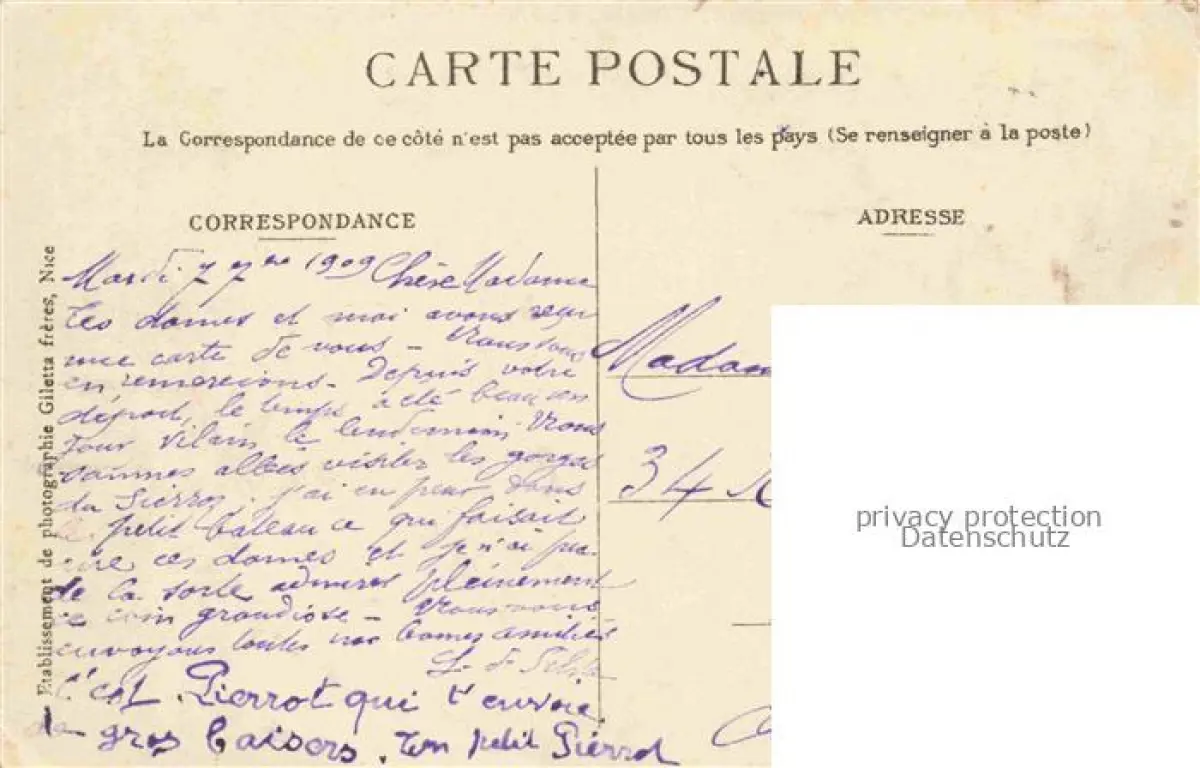 CARTE POSTALE
La Correspondance de ce côté n'est pas acceptée par tous les pays (Se renseigner à la poste)
CORRESPONDANCE
ADRESSE
Etablissement de photographie Giletta frères, Nice
Mardi 7 7bre 1909 Chère Madame
Ces dames et moi avons reçu
une carte de vous - Nous vous
en remercions - Depuis votre
départ, le temps a été beau un
jour vilain le lendemain. Nous
sommes allées visiter les gorges
du Sierroz. j'ai eu peur dans
le petit bateau ce qui faisait
rire ces dames et je n'ai pu
de la sorte admirer pleinement
ce coin grandiose - Nous vous
envoyons toutes nos bonnes amitiés
C'est Pierrot qui t'envoie
de gros baisers. ton petit Pierrot
Madam
34
privacy protection
Datenschutz